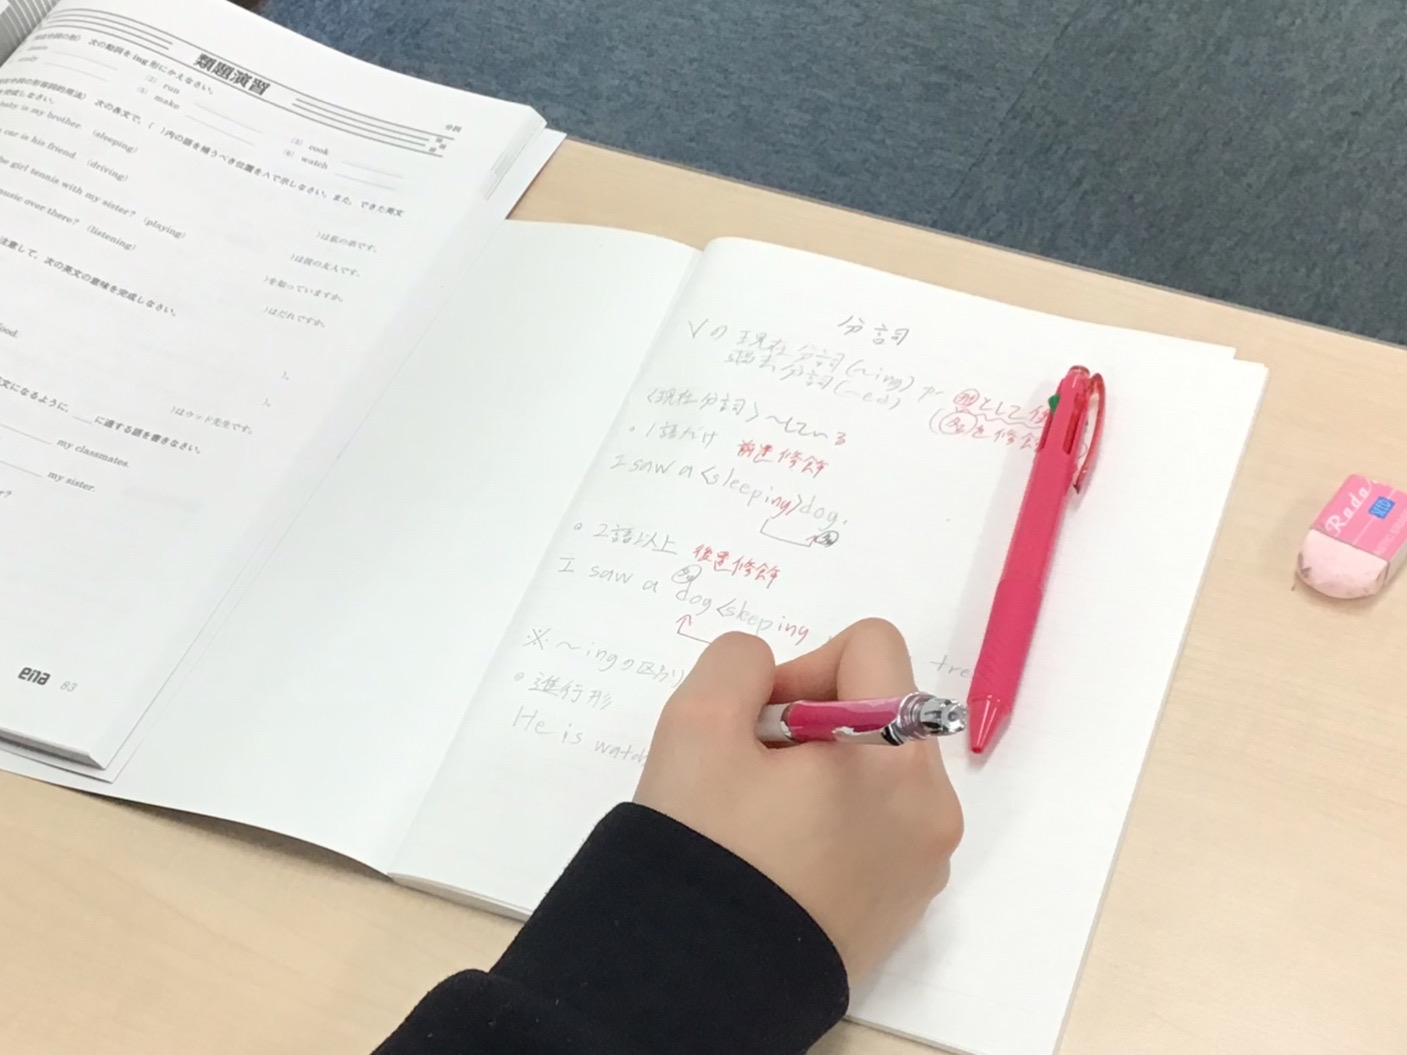 類題演習
分詞
次の動詞を ing 形にかえなさい。
(2) run
(3) cook
study
(5) make
(6) watch
次の各文で、( )内の語を補うべき位置を∧で示しなさい。また、できた英文
を完成しなさい。
baby is my brother. (sleeping)
)は私の弟です。
car is his friend. (driving)
)は彼の友人です。
he girl tennis with my sister? (playing)
)を知っていますか。
music over there? (listening)
)はだれですか。
注意して、次の英文の意味を完成しなさい。
food.
)。
)。
)はウッド先生です。
文になるように、___に適する語を書きなさい。
my classmates.
my sister.
ena 83
分詞
Vの 現在分詞(〜ing)
過去分詞(〜ed) が 形として使
(名を修飾
<現在分詞> 〜している
・1語だけ 前置修飾
I saw a <sleeping> dog.
名
・2語以上 後置修飾
名
I saw a dog <sleeping tree
※ 〜ingの区別
・進行形
He is watch
Radar
SEED